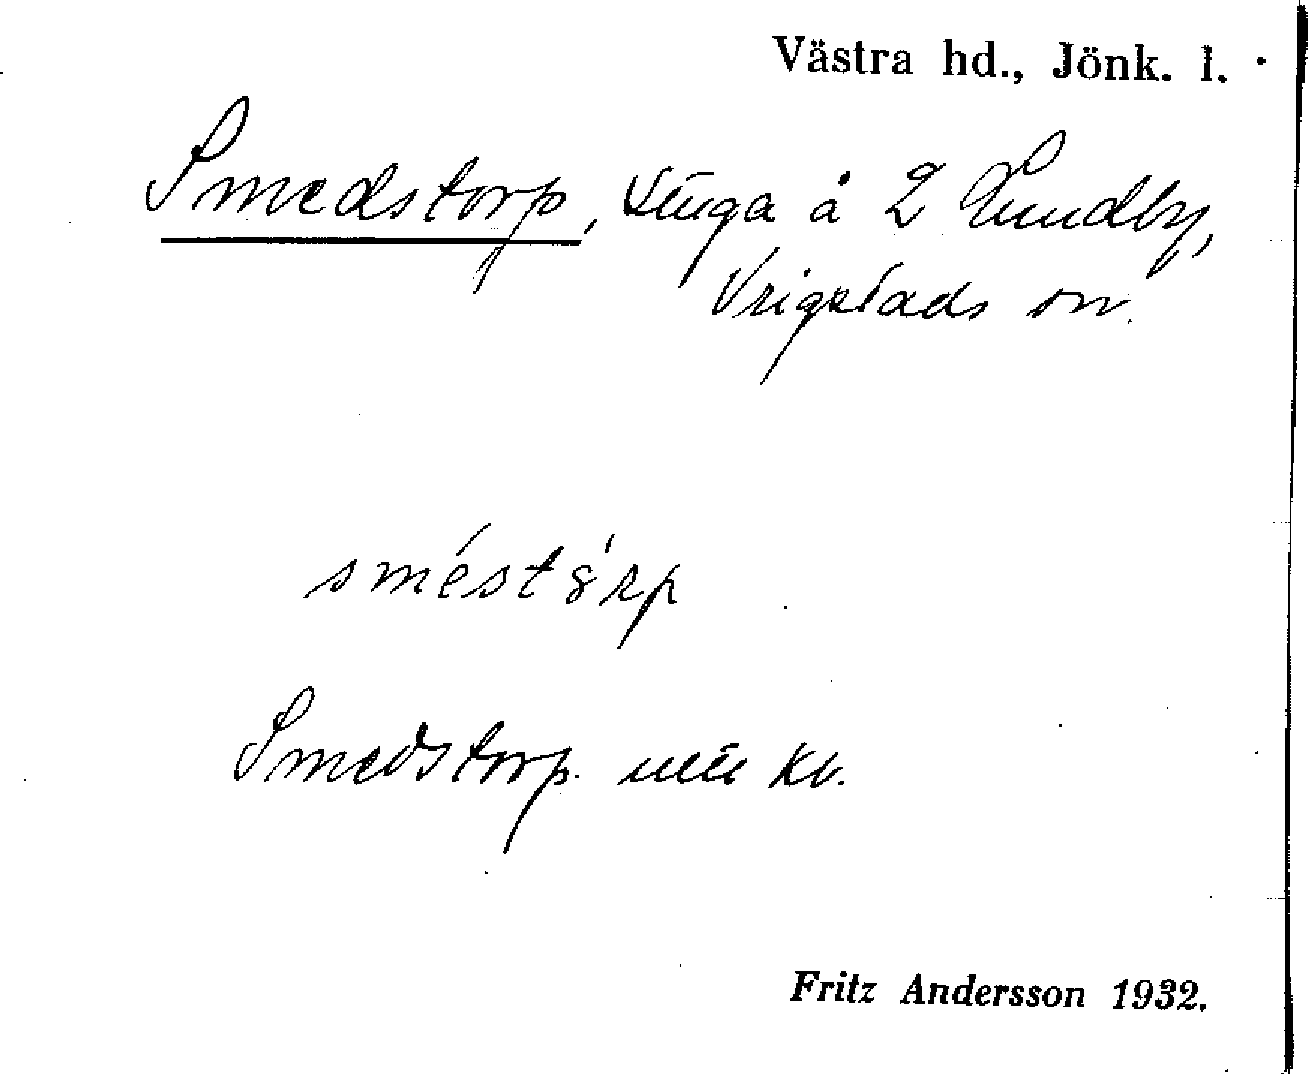 Västra hd., Jönk. l.
Smedstorp, stuga å 2 Lundby,
Vrigstads sn.
sméstórp
Smedstorp kv.
Fritz Andersson 1932.